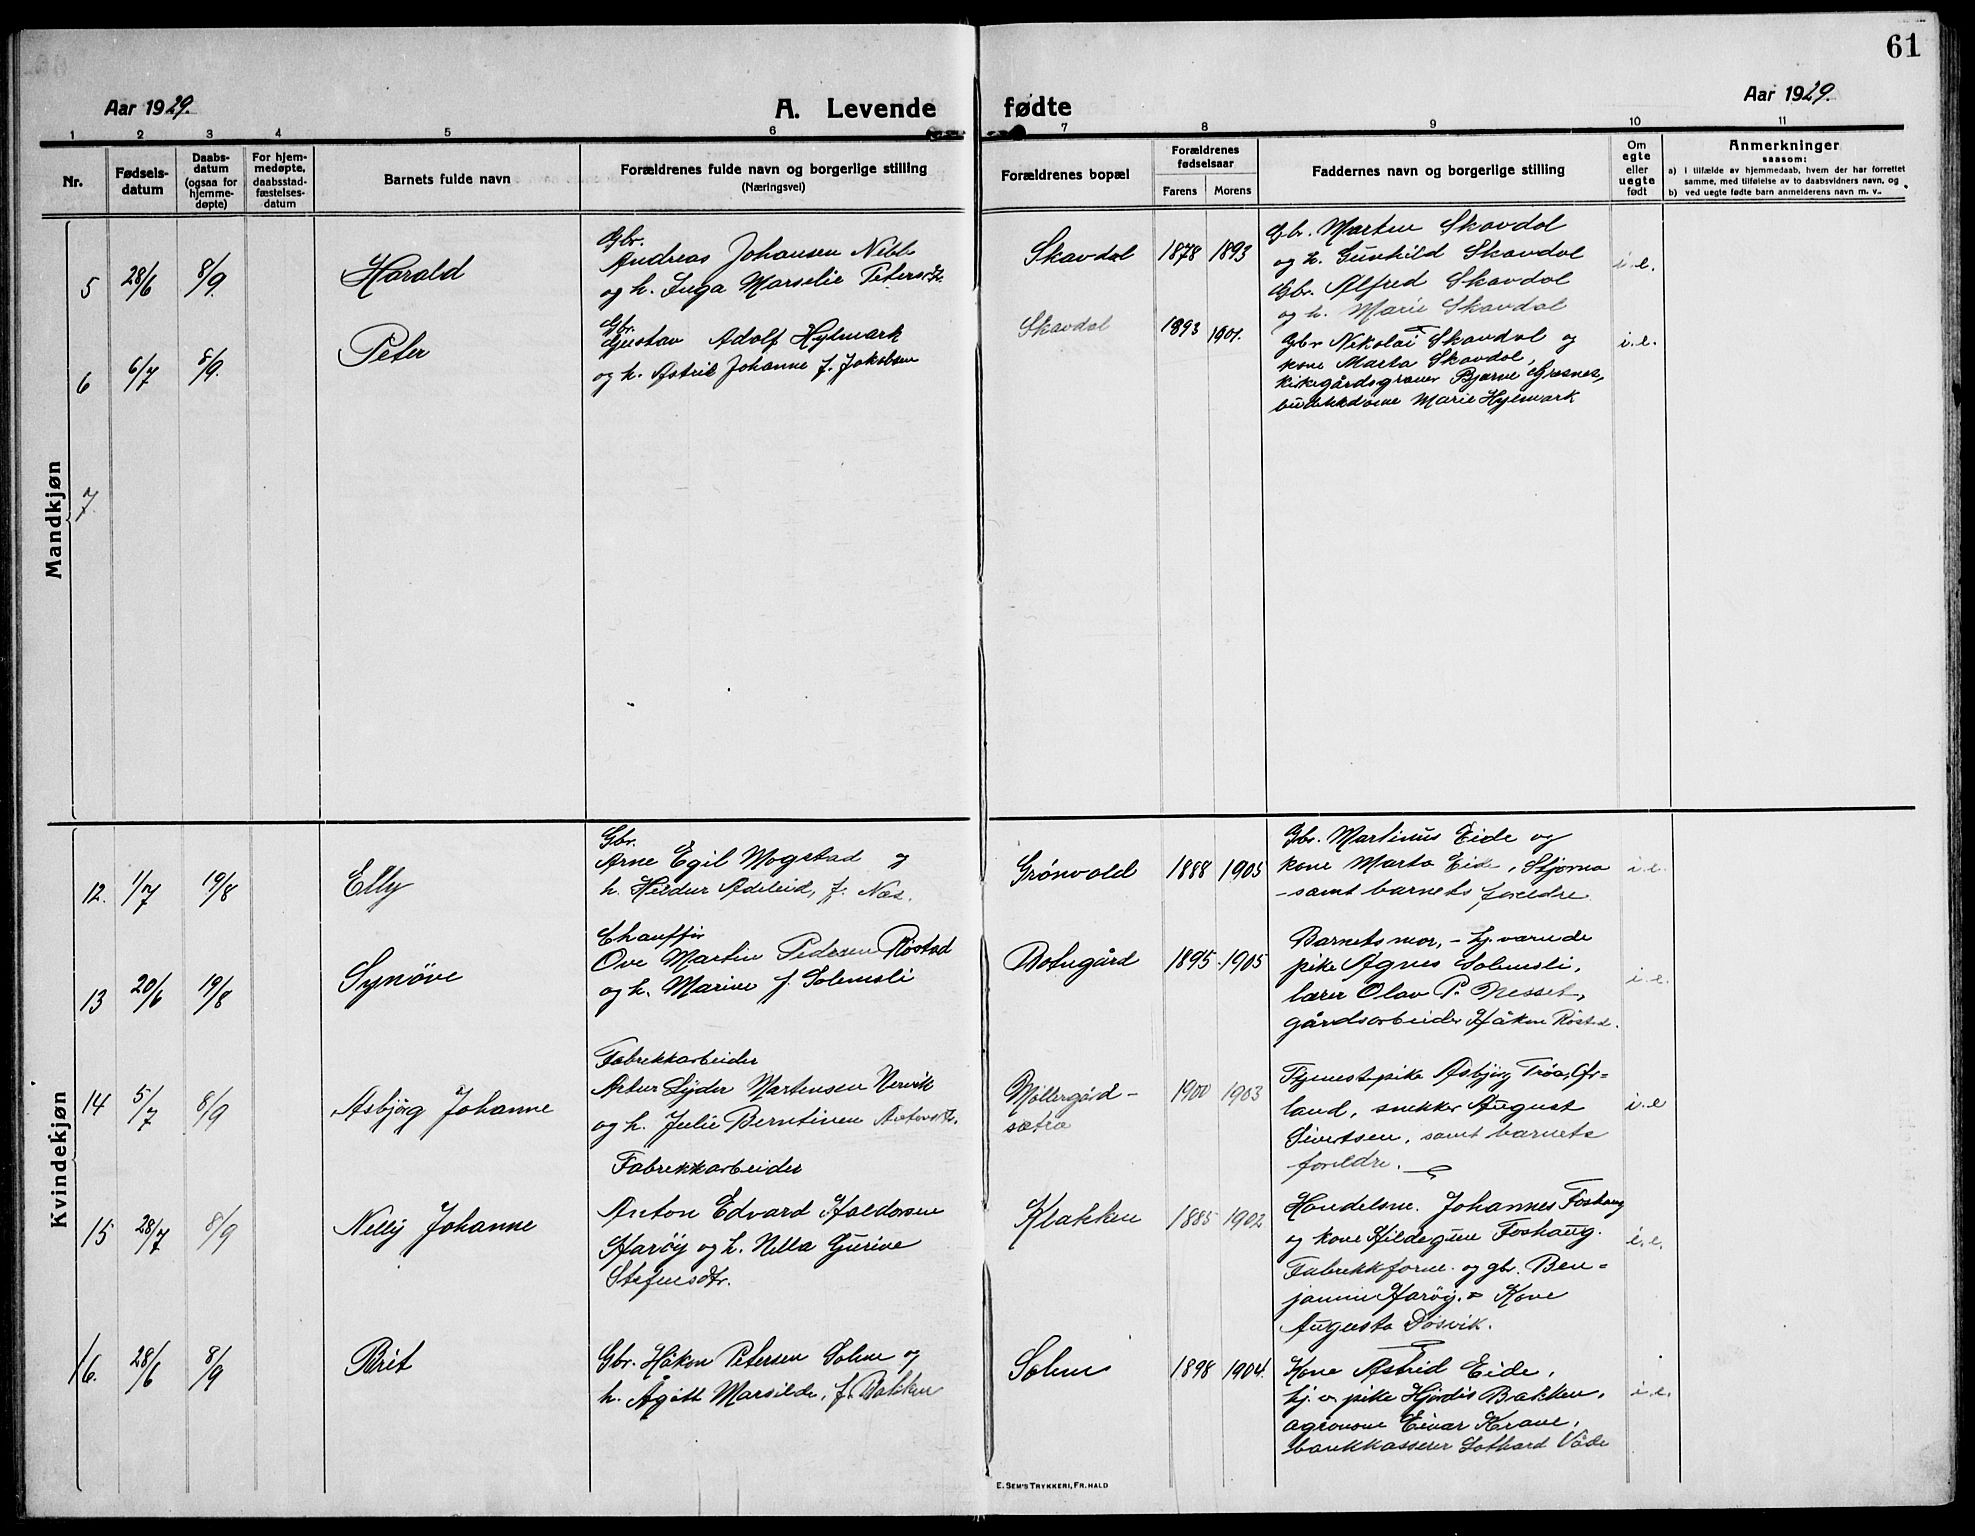 61
Aar 1929.
A. Levende fødte
Aar 1929.
1 2 3 4 5 6 7 8 9 10 11
Nr.
Fødsels-
datum
Daabs-
datum
(ogsaa for
hjemme-
døpte)
For hjem-
medøpte,
daabsstad-
fæstelses-
datum
Barnets fulde navn
Forældrenes fulde navn og borgerlige stilling
(Næringsvei)
Forældrenes bopæl
Forældrenes
fødselsaar
Farens Morens
Faddernes navn og borgerlige stilling
Om
egte
eller
uegte
født
Anmerkninger
saasom:
a) i tilfælde av hjemmedaab, hvem der har forrettet
samme, med tilføielse av to daabsvidners navn, og
b) ved uegte fødte barn anmelderens navn m. v.
Mandkjøn
5 28/6 8/9. Harald
Gbr.
Andreas Johansen
og h. Inga Marselie Petersdtr.
Skavdal 1878 1893
Gbr. Marten Skavdal
og h. Gunhild Skavdal
Gbr. Alfred Skavdal
og h. Marie Skavdal
i.e.
6 6/7 8/9. Peter
Gbr.
Gustav Adolf Hylmark
og h. Astrid Johanne f. Jakobsen
Skavdal 1893 1901.
Gbr Nikolai Skavdal og
kone Marta Skavdal,
kirkegårdsgraver Bjarne
Marie Hylmark
i.e.
7
Kvindekjøn
12. 1/7 19/8 Elly
Gbr.
Arne Egil Mogstad og
h. Hildur Adeleid, f. Næs.
Grønvold 1888 1905
Gbr. Martinus Eide og
kone Marta Eide, Stjørna
- samt barnets foreldre
i.e.
13 20/6 19/8 Synöve
Chauffør
Ove Martin Pedersen Röstad
og h. Marine f. Solemsli
1895 1905
Barnets mor, - hj.værende
pike Agnes Solemsli,
lærer Olav P. Nesset,
gårdsarbeider Håkon Röstad.
i.e.
14 5/7 8/9 Asbjörg Johanne
Fabrekkarbeider
Artur Lyder Martensen Vervik
og h. Julie Berntinen Antonsdtr.
Möllergård-
sætra
1900 1903
Tjenestepike Asbjörg Tröa,
land, snekker August
Sivertsen, samt barnets
foreldre.
i.e
15 28/7 8/9 Nelly Johanne
Fabrekkarbeider
Anton Edvard Haldorsen
Haröy og h. Nella Gurine
Stefensdtr.
Klakken 1885 1902
Handelsm. Johannes Foshaug
og kone Hildegunn Foshaug.
Fabrekkform. og gbr. Ben-
jamin Haröy. Kone
Augusta Dösvik.
i.e.
16. 28/6 8/9 Brit
Gbr. Håkon Petersen Solem og
h. Ågått Marsilde, f. Bakken
Solem 1898 1904.
Kone Astrid Eide,
hj. v. pike Hjördis Bakken,
agronom Einar Krane,
bankkasserer Lothard Våde
i.e.
E. SEM'S TRYKKERI, FR.HALD